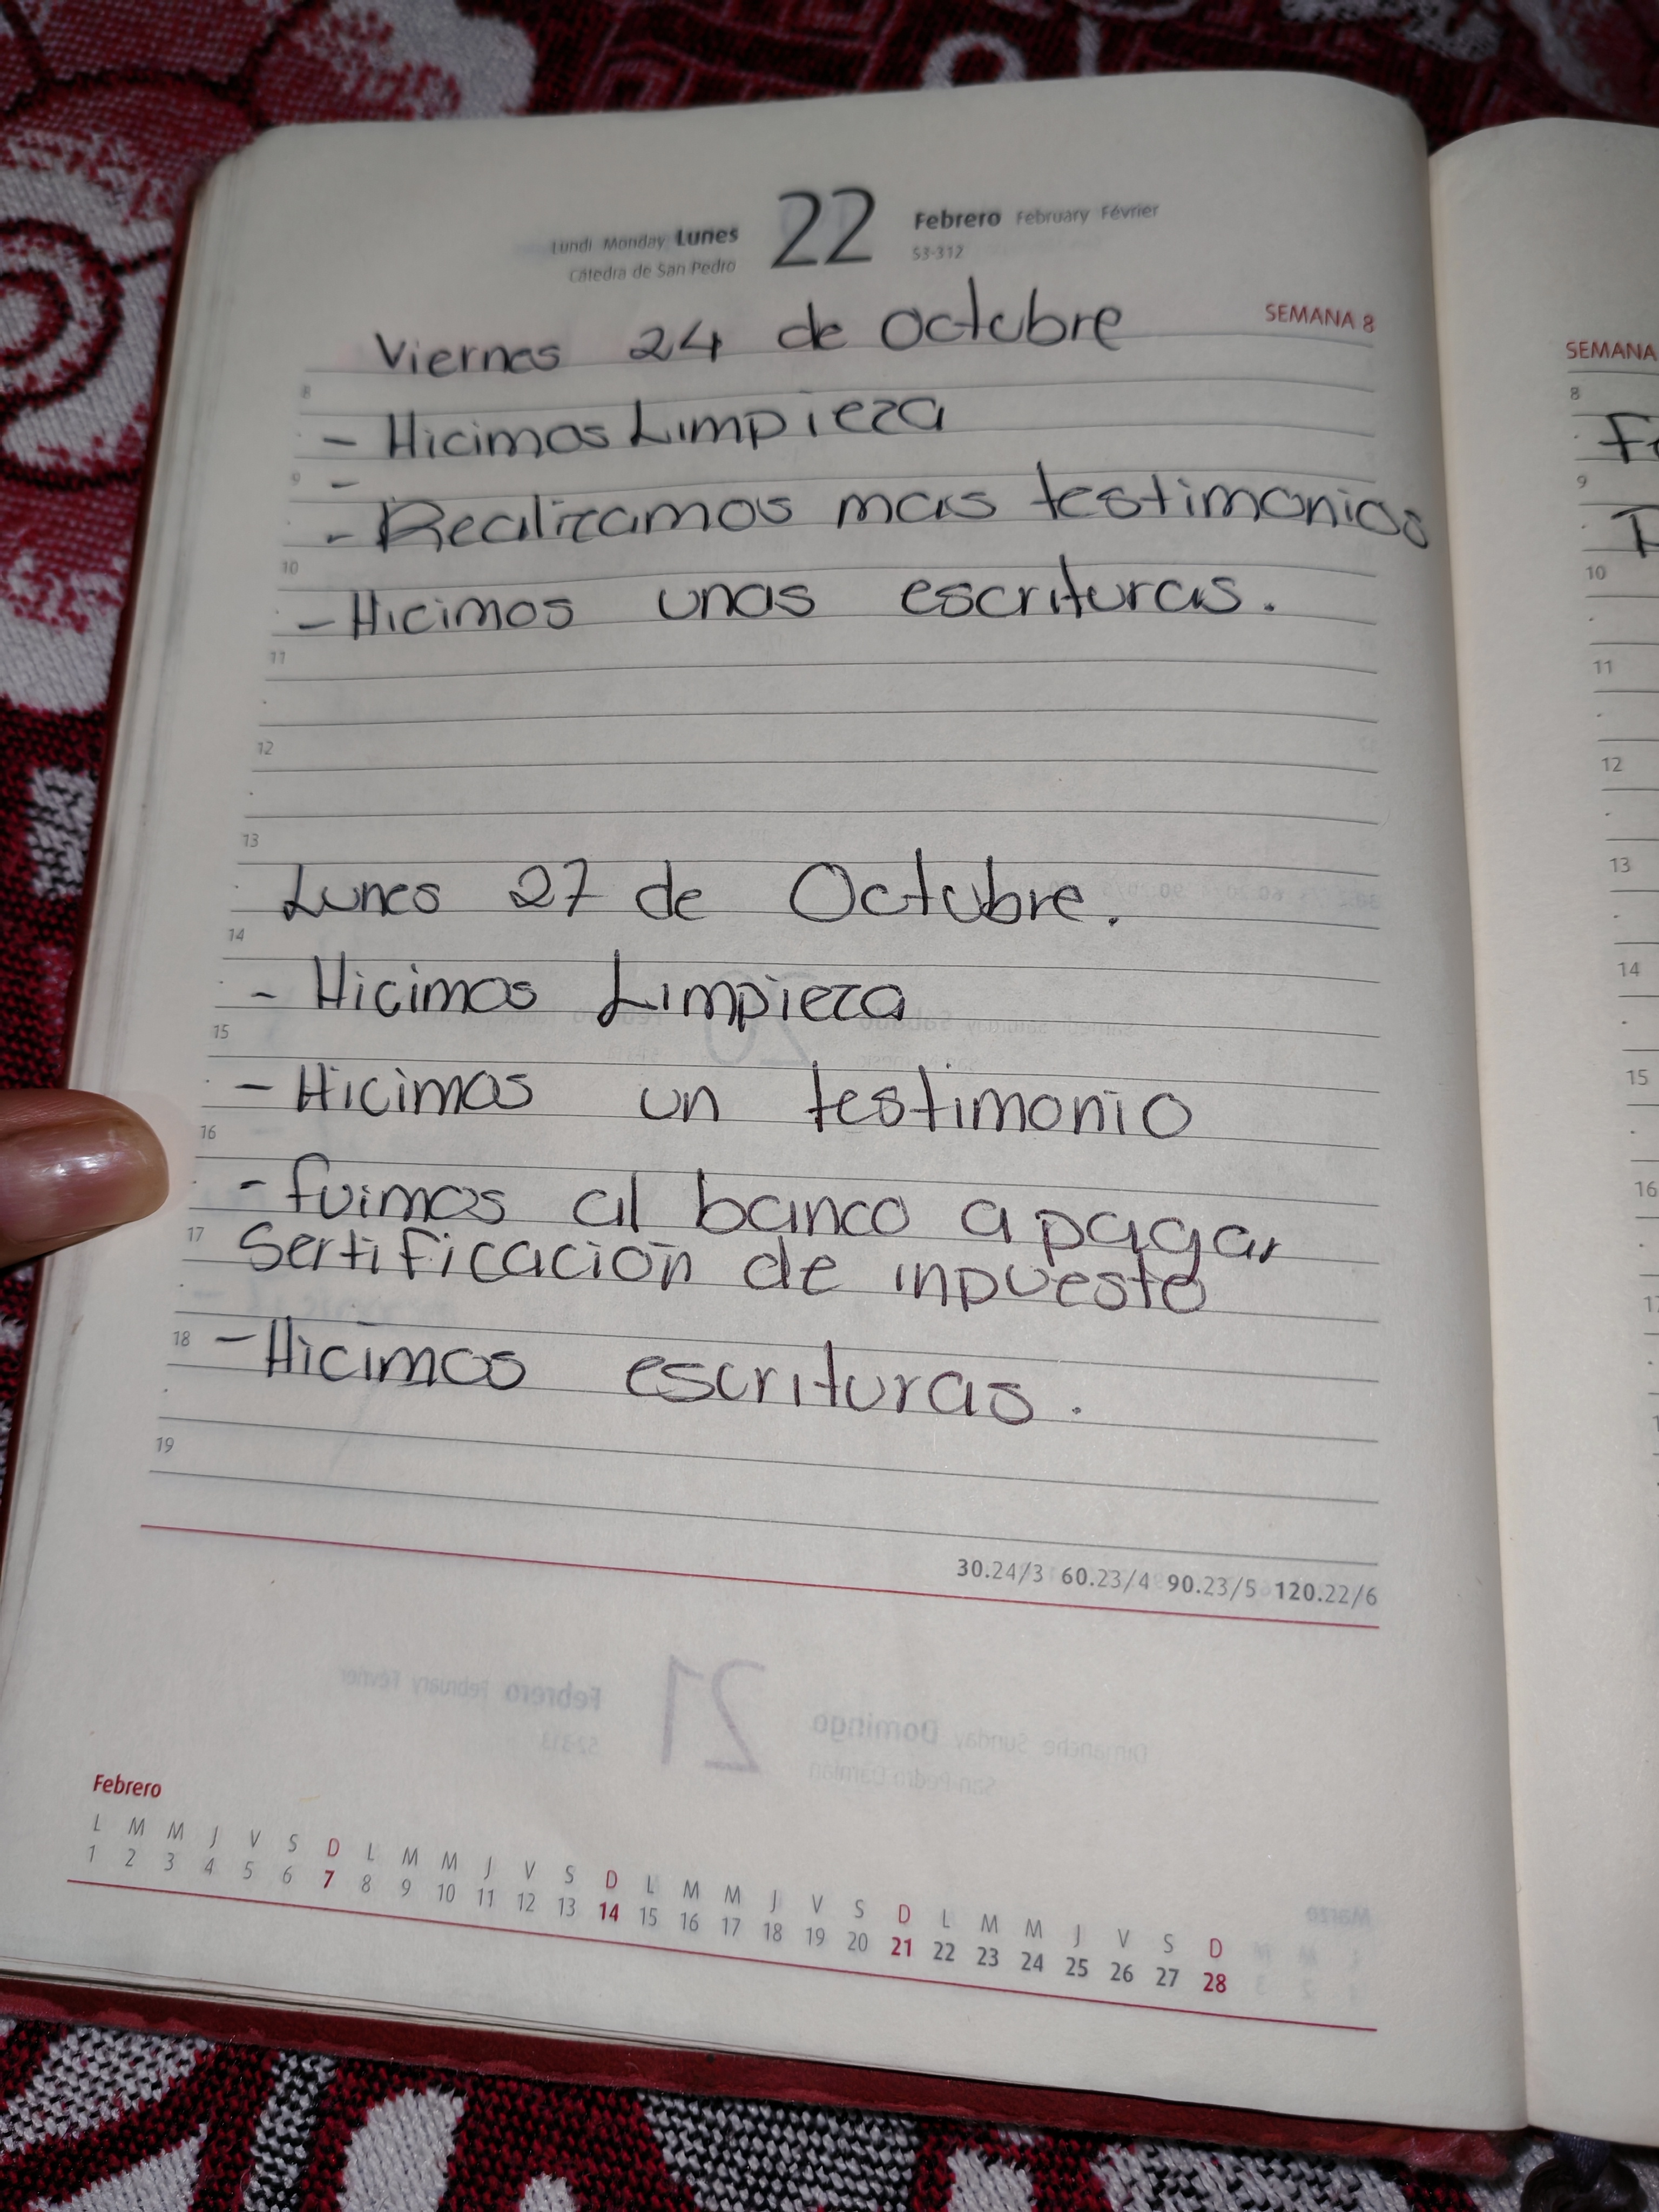 Lundi Monday Lunes 22 Febrero February Février
Cátedra de San Pedro 53-312
SEMANA 8
Viernes 24 de Octubre
8
- Hicimos Limpieza
9 -
- Realizamos mas testimonios
10
- Hicimos unas escrituras.
11
12
13
Lunes 27 de Octubre.
14
- Hicimos Limpieza
15
- Hicimos un testimonio
16
- fuimos al banco a pagar
17
Sertificación de inpuesto
18
- Hicimos escrituras.
19
30.24/3 60.23/4 90.23/5 120.22/6
Febrero
L M M J V S D L M M J V S D L M M J V S D L M M J V S D
1 2 3 4 5 6 7 8 9 10 11 12 13 14 15 16 17 18 19 20 21 22 23 24 25 26 27 28
SEMANA
8
9
10
11
12
13
14
15
16